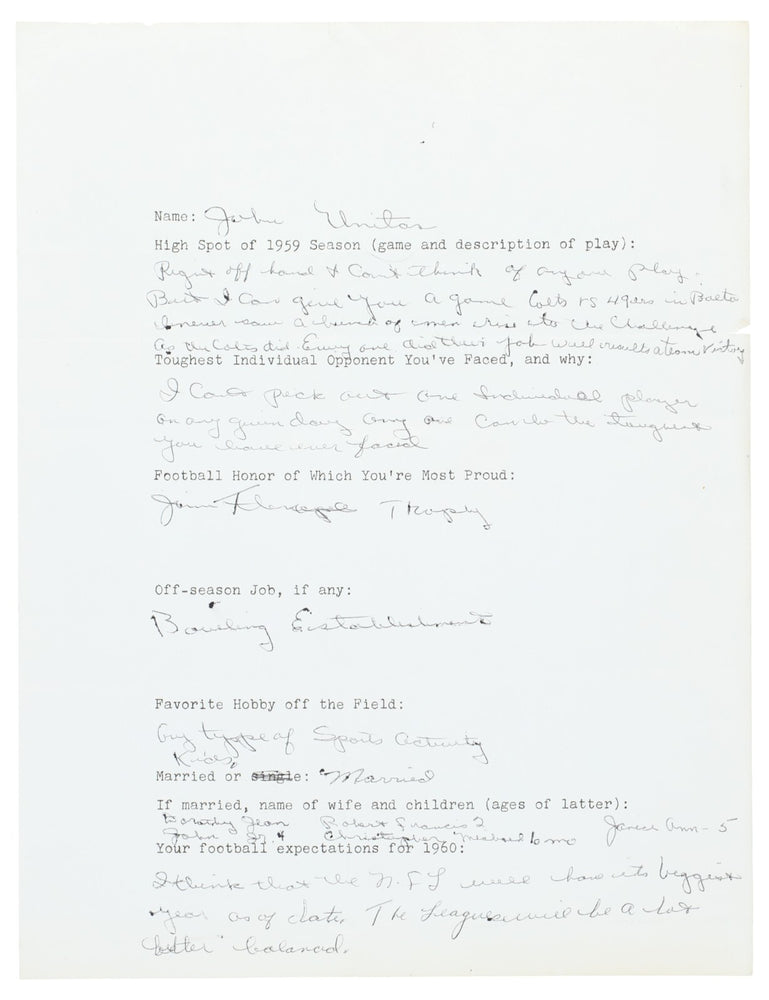 Name: John Unitas
High Spot of 1959 Season (game and description of play):
Right off hand I Can't think of any one play.
But I Can give you a game Colts vs 49ers in Balto
I never saw a bunch of men rise to the Challenge
As the Colts did. Every one did their job well results a team Victory
Toughest Individual Opponent You've Faced, and why:
I Can't pick out one Individual player
on any given day any one Can be the toughest
you have ever faced
Football Honor of Which You're Most Proud:
Jim Thorpe Trophy
Off-season Job, if any:
Bowling Establishment
Favorite Hobby off the Field:
Any type of Sports Activity
Kids,
Married or single: Married
If married, name of wife and children (ages of latter):
Dorothy Jean Robert Francis 2 Janice Ann - 5
John Jr. 4 Christopher Michael 6 mo
Your football expectations for 1960:
I think that the N.F.L will have its biggest
year as of date. The League will be a lot
better balanced.